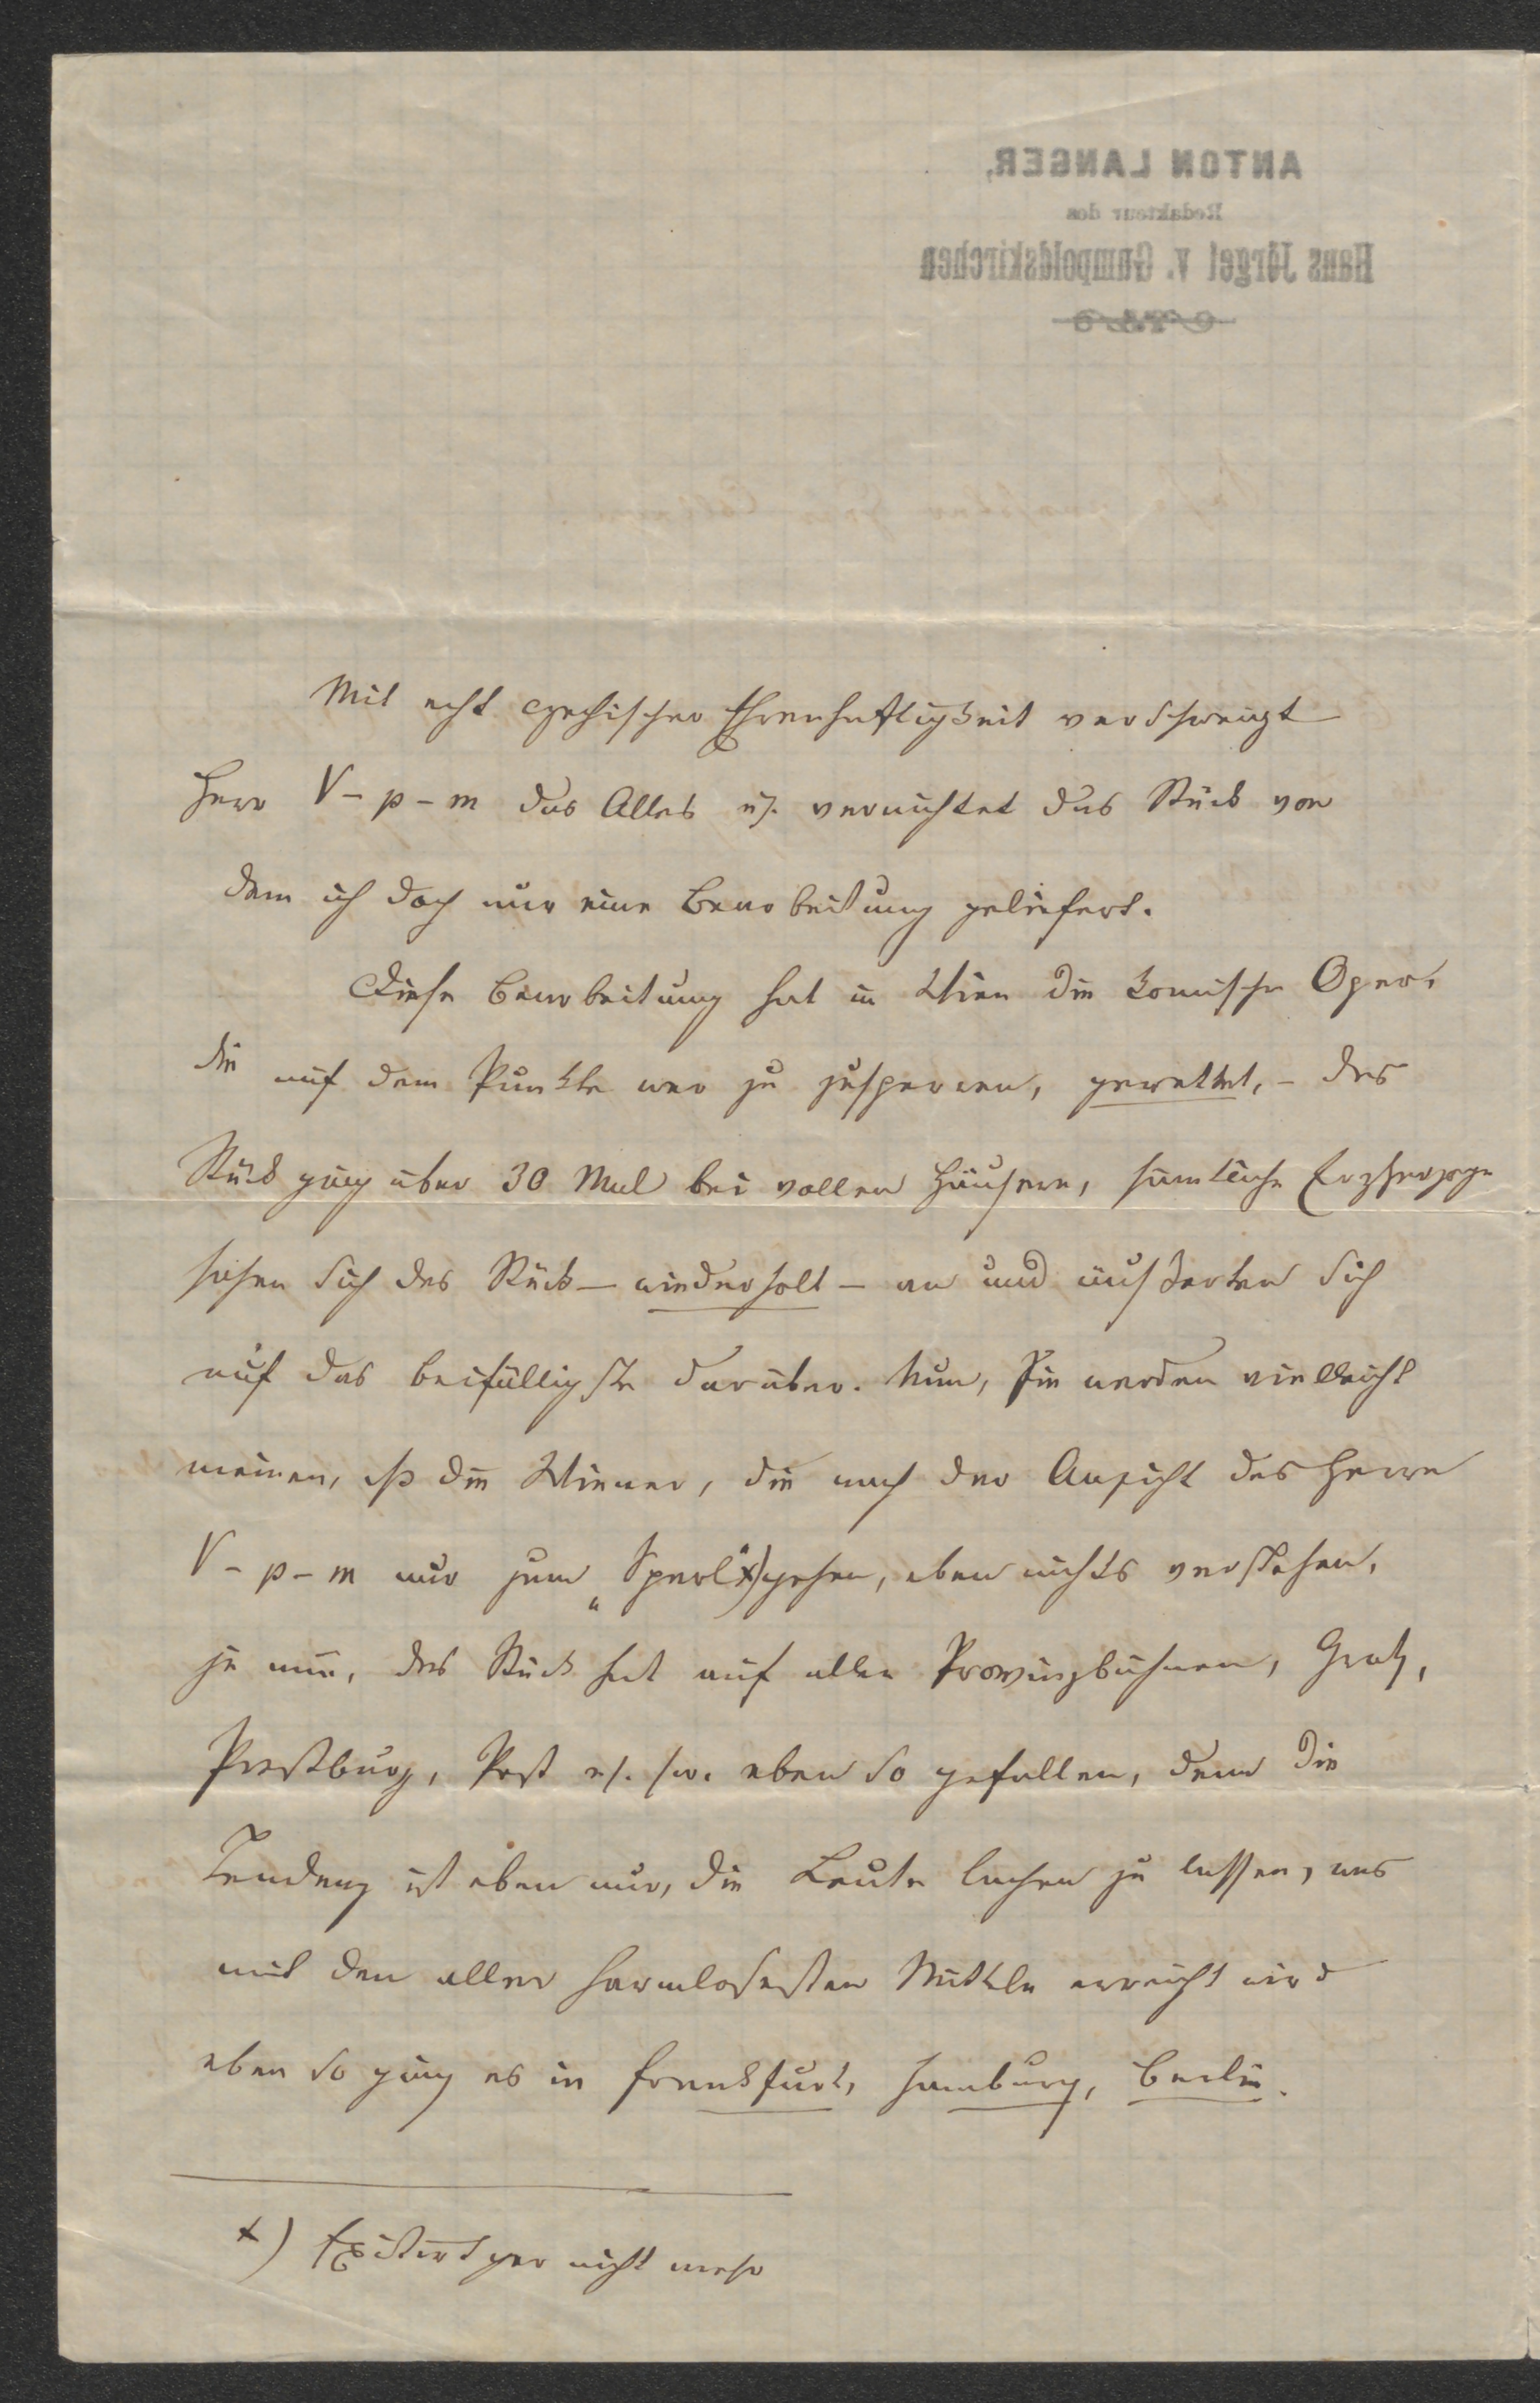 ANTON LANGER,
Redakteur des
Hans Jörgel v. Gumpoldskirchen
Mit echt czechischer Ehrenhaftigkeit verschweigt
Herr V-p-m das Alles u. vernichtet das Stück von
dem ich doch nur eine Bearbeitung geliefert.
Diese Bearbeitung hat in Wien die komische Oper,
die auf dem Punkte war zu zusperren, gerettet, - das
Stück ging über 30 Mal bei vollen Häusern, sämtliche Erzherzoge
sahen sich das Stück - wiederholt - an und äußerten sich
auf das beifälligste darüber. Nun, Sie werden vielleicht
meinen, die Wiener, die nach der Ansicht des Herrn
V-p-m nur zum „Sperl“ x) gehen, eben nichts verstehen,
je nun, das Stück hat auf allen Provinzbühnen, Gratz,
Preßburg, Pest u. s. w. eben so gefallen, denn die
Tendenz ist eben nur, die Leute lachen zu lassen, was
mit den aller harmlosesten Mitteln erreicht wird
eben so ging es in Frankfurt, Hamburg, Berlin.
x) Existirt gar nicht mehr